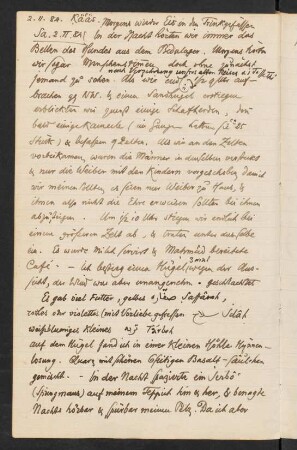 2. II. 82. Kääf. Morgens wieder Eis an den Trinkgefäßen
Sa. 2. II. 82 | In der Nacht hörten wir immer das
Bellen des Hundes aus dem Beduinenlager. Morgens hörten
wir sogar Menschenstimmen, doch ohne zunächst
jemand zu sehen. Als wir auf
brachen gg NW. & einen Sandhügel erstiegen
erblickten wir zuerst einige Schafherden, dann
bald einige Kameele (im Ganzen hatten sie
Stück) & besassen 9 Zelten. Als wir an den Zelten
vorbeikamen, waren die Männer in denselben versteckt
& nur die Weiber mit den Kindern vorgeschoben, damit
wir meinen sollten, es seien nur Weiber zu Haus, &
ihnen also nicht die Ehre erweisen sollten bei ihnen
abzusteigen. Um ½ 10 Uhr stiegen wir endlich bei
einem größeren Zelt ab, & traten unter dasselbe
ein. Es wurde Milch servirt & Mahmûd bereitete
Café. — Ich bestieg einen Hügel, wegen der Aus-
sicht, der Wind war aber unangenehm.
Es gab viel Futter, gelbes
rothes oder violettes (mit Vorliebe gefressen
weißblumiges kleines
auf dem Hügel fand ich in einer kleinen Höhle Hyänen-
losung. Quarz mit schönen Basalt-säulchen
gemischt. — In der Nacht spazierte ein Jerbô
(Springmaus) auf meinem Teppich hin & her, & benagte
Nachts hörbar & spürbar meinen Pelz. Da ich aber